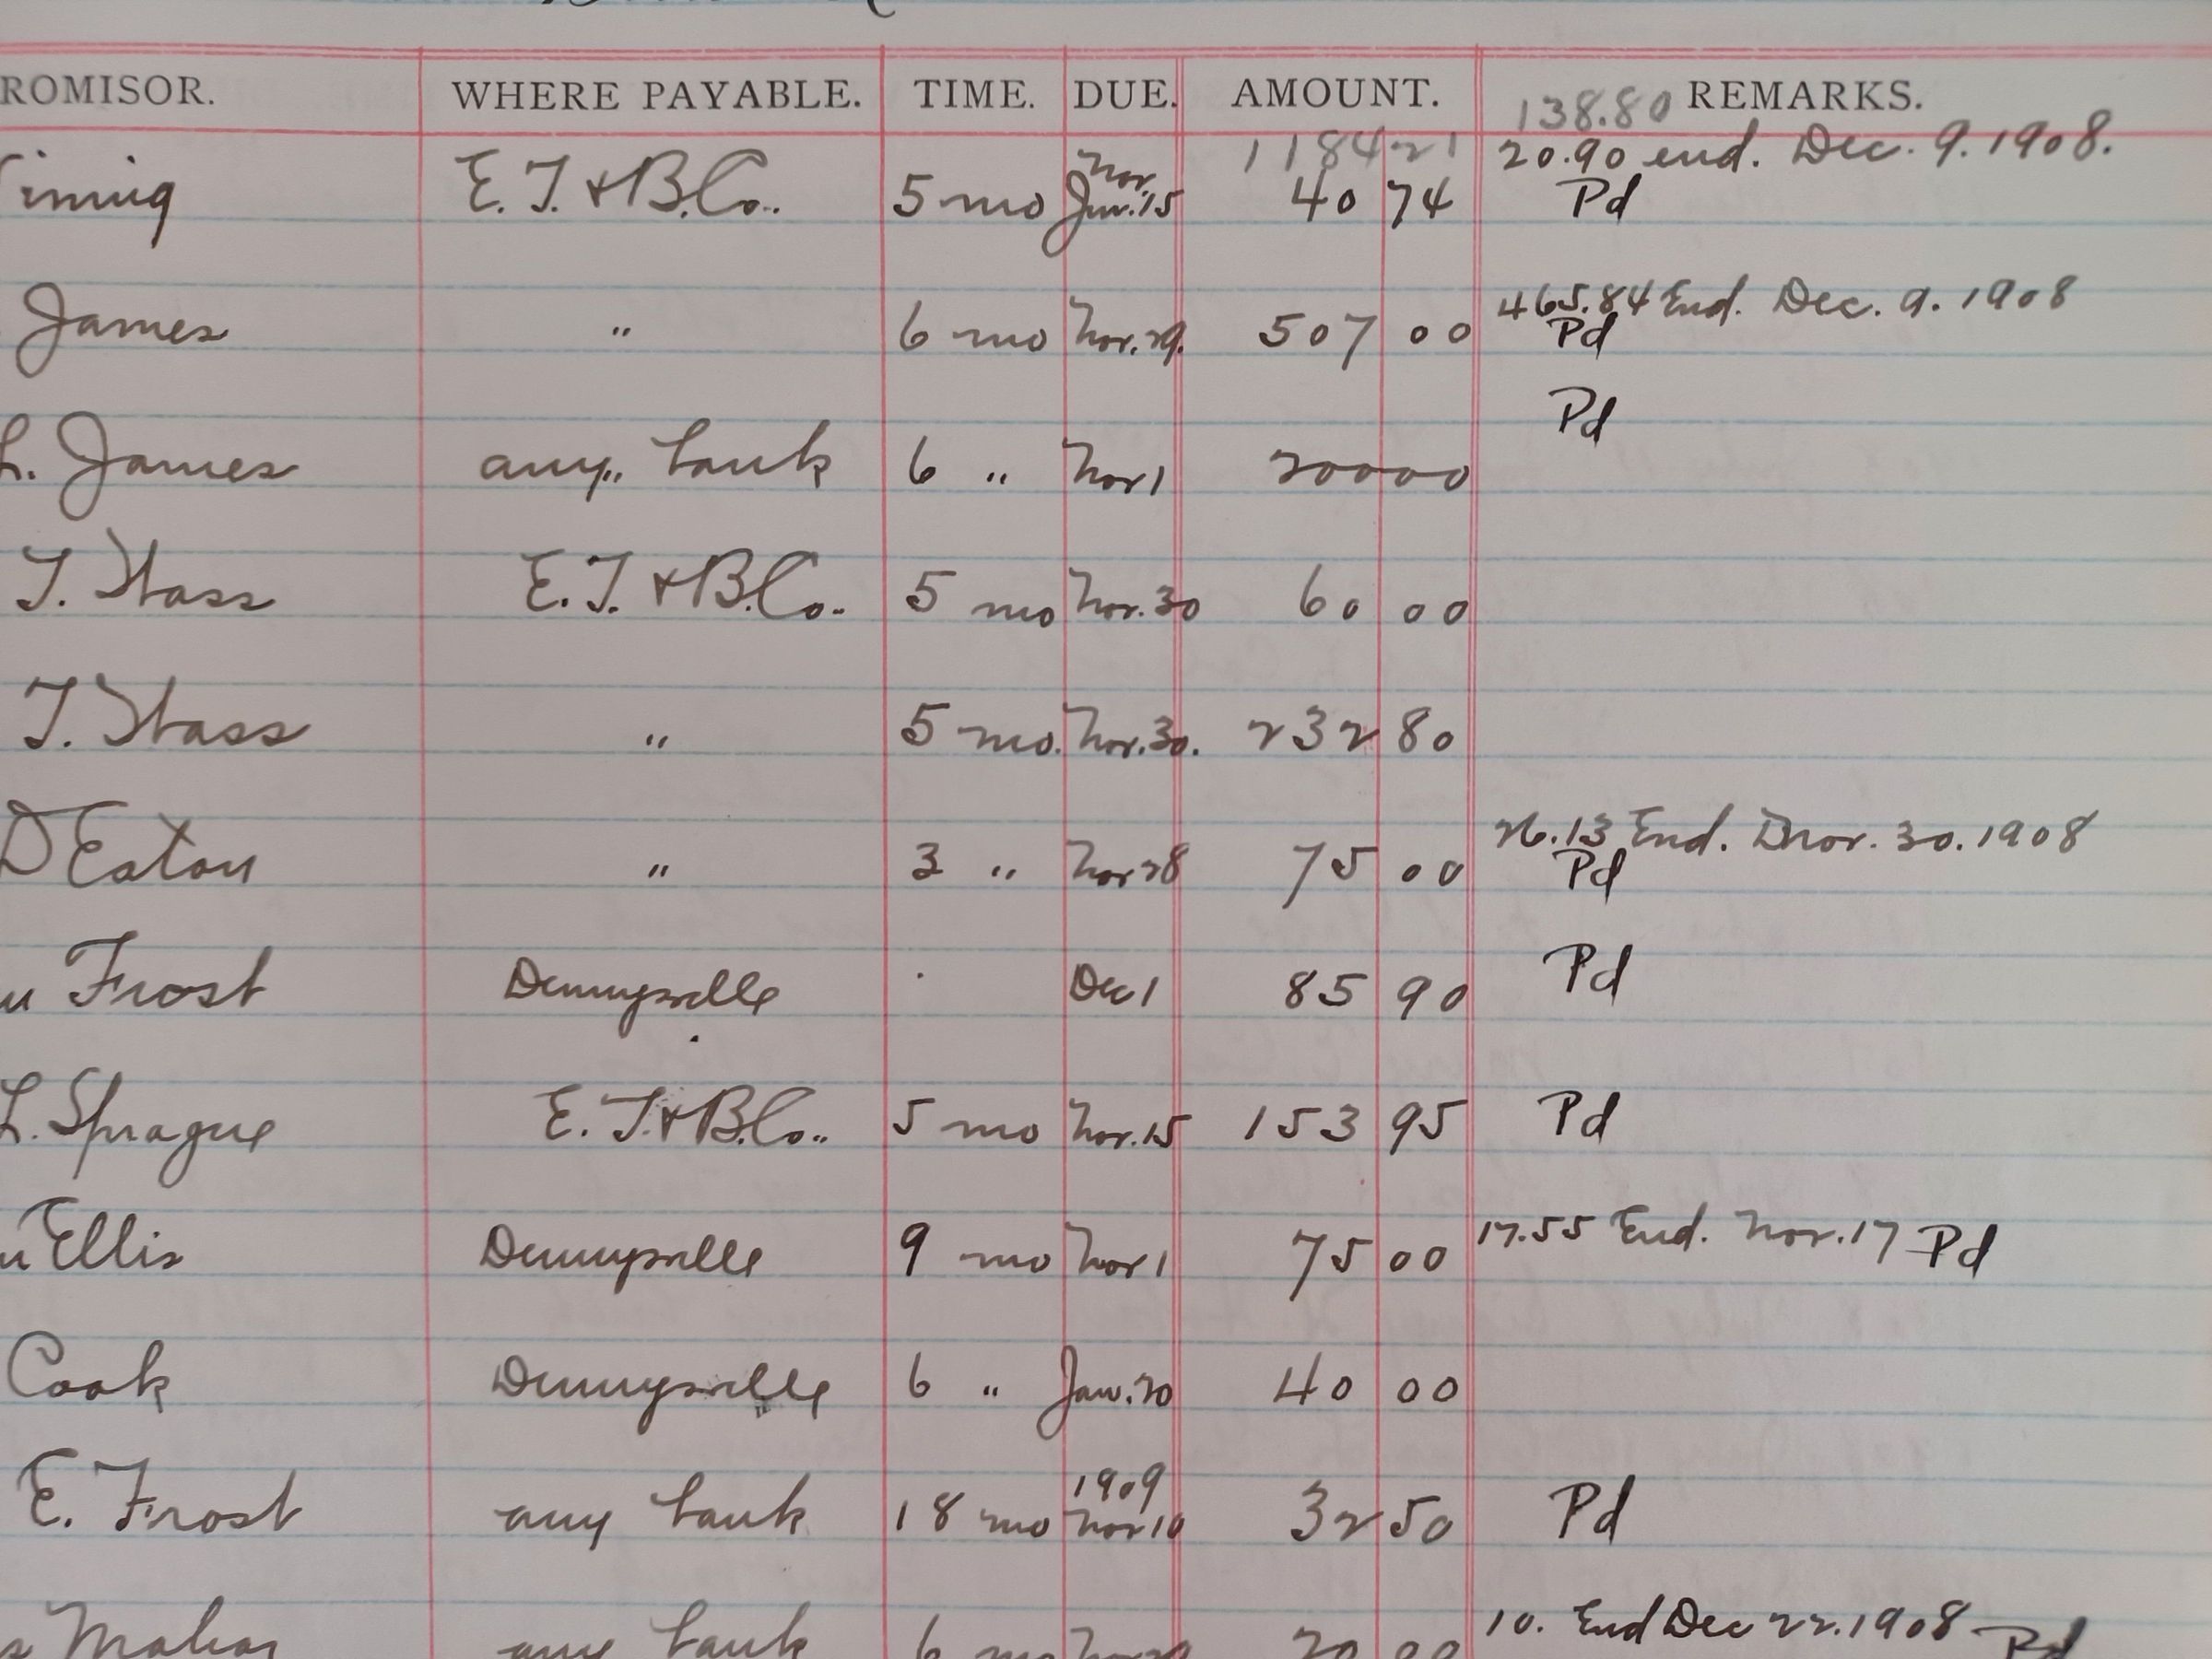 ROMISOR. WHERE PAYABLE. TIME. DUE. AMOUNT. REMARKS.
138.80
1184 21 20.90 end. Dec. 9. 1908.
E. T. & B. Co. 5 mo Nov. Jun. 15 40 74 Pd
465.84 End. Dec. 9. 1908
James " 6 mo Nov. 29. 507 00 Pd
Pd
L. James any bank 6 " Nov 1 200 00
T. Hass E. T. & B. Co. 5 mo Nov. 30 60 00
T. Hass " 5 mo. Nov. 30. 232 80
26.13 End. Nov. 30. 1908
D Eaton " 3 " Nov 28 75 00 Pd
Frost Dennysville Dec 1 85 90 Pd
L. Sprague E. T. & B. Co. 5 mo Nov. 15 153 95 Pd
Ellis Dennysville 9 mo Nov 1 75 00 17.55 End. Nov. 17 Pd
Cook Dennysville 6 " Jan. 20 40 00
1909
E. Frost any bank 18 mo Nov 10 32 50 Pd
10. End Dec 22. 1908 Pd
Mahar any bank 6 mo 20 00